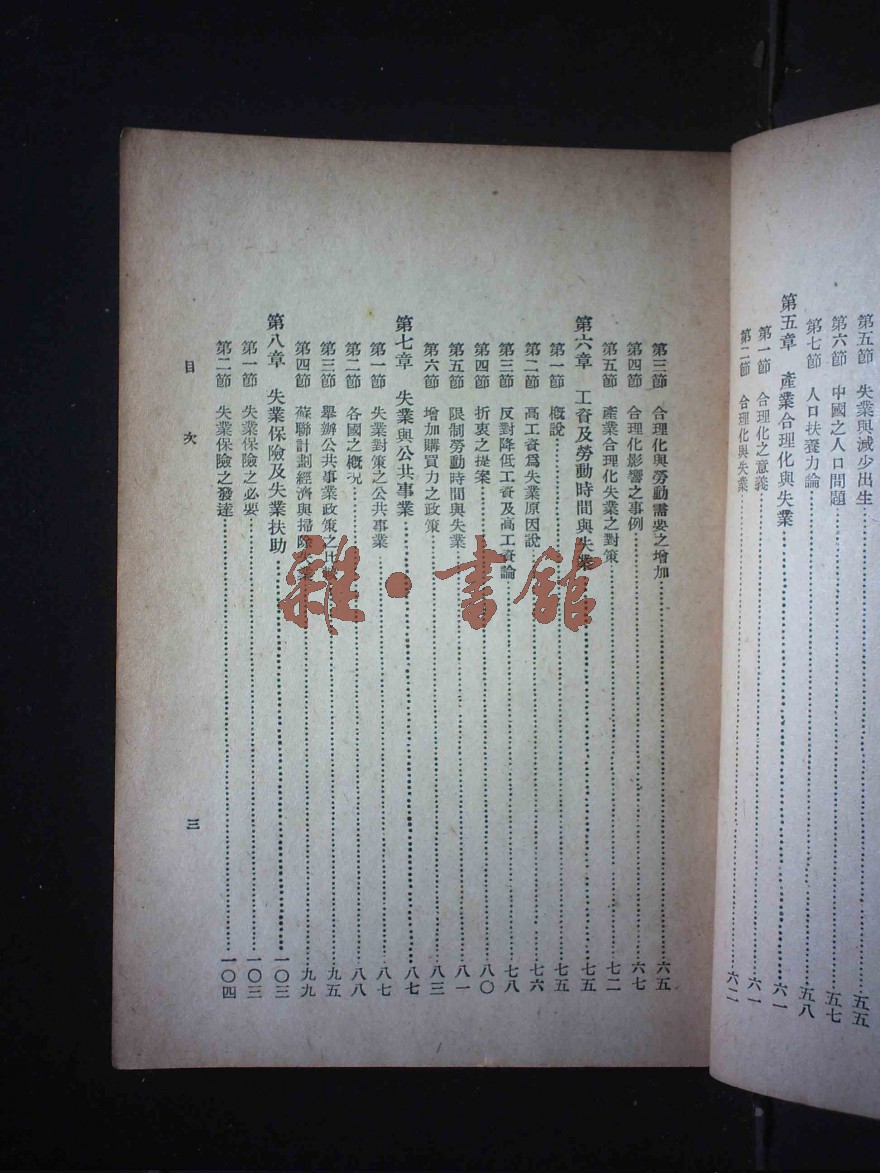 第五節　失業與減少出生……五五
第六節　中國之人口問題……五七
第七節　人口扶養力論……五八
第五章　產業合理化與失業……六一
第一節　合理化之意義……六一
第二節　合理化與失業……六二
第三節　合理化與勞動需要之增加……六五
第四節　合理化影響之事例……六七
第五節　產業合理化失業之對策……七二
第六章　工資及勞動時間與失業……七五
第一節　概說……七五
第二節　高工資爲失業原因說……七六
第三節　反對降低工資及高工資論……七八
第四節　折衷之提案……八〇
第五節　限制勞動時間與失業……八一
第六節　增加購買力之政策……八三
第七章　失業與公共事業……八七
第一節　失業對策之公共事業……八七
第二節　各國之概況……八八
第三節　舉辦公共事業政策之比較……九五
第四節　蘇聯計劃經濟與掃除失業……九九
第八章　失業保險及失業扶助……一〇三
第一節　失業保險之必要……一〇三
第二節　失業保險之發達……一〇四
目次
三
雜·書館